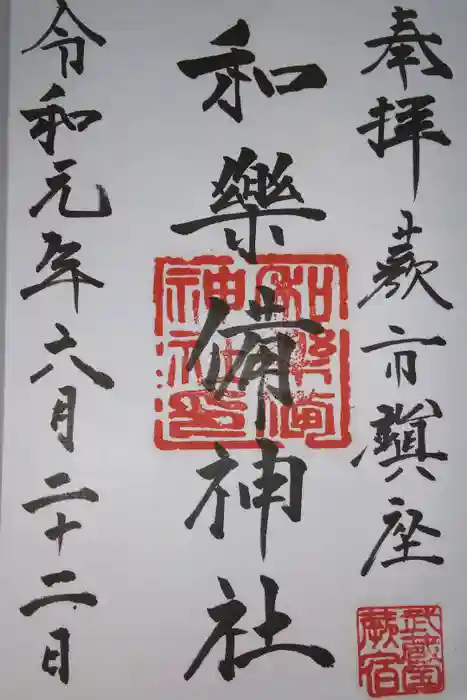 奉拝 蕨市鎮座
武蔵国
蕨宿
和樂備神社
和樂備
神社印
令和元年六月二十二日